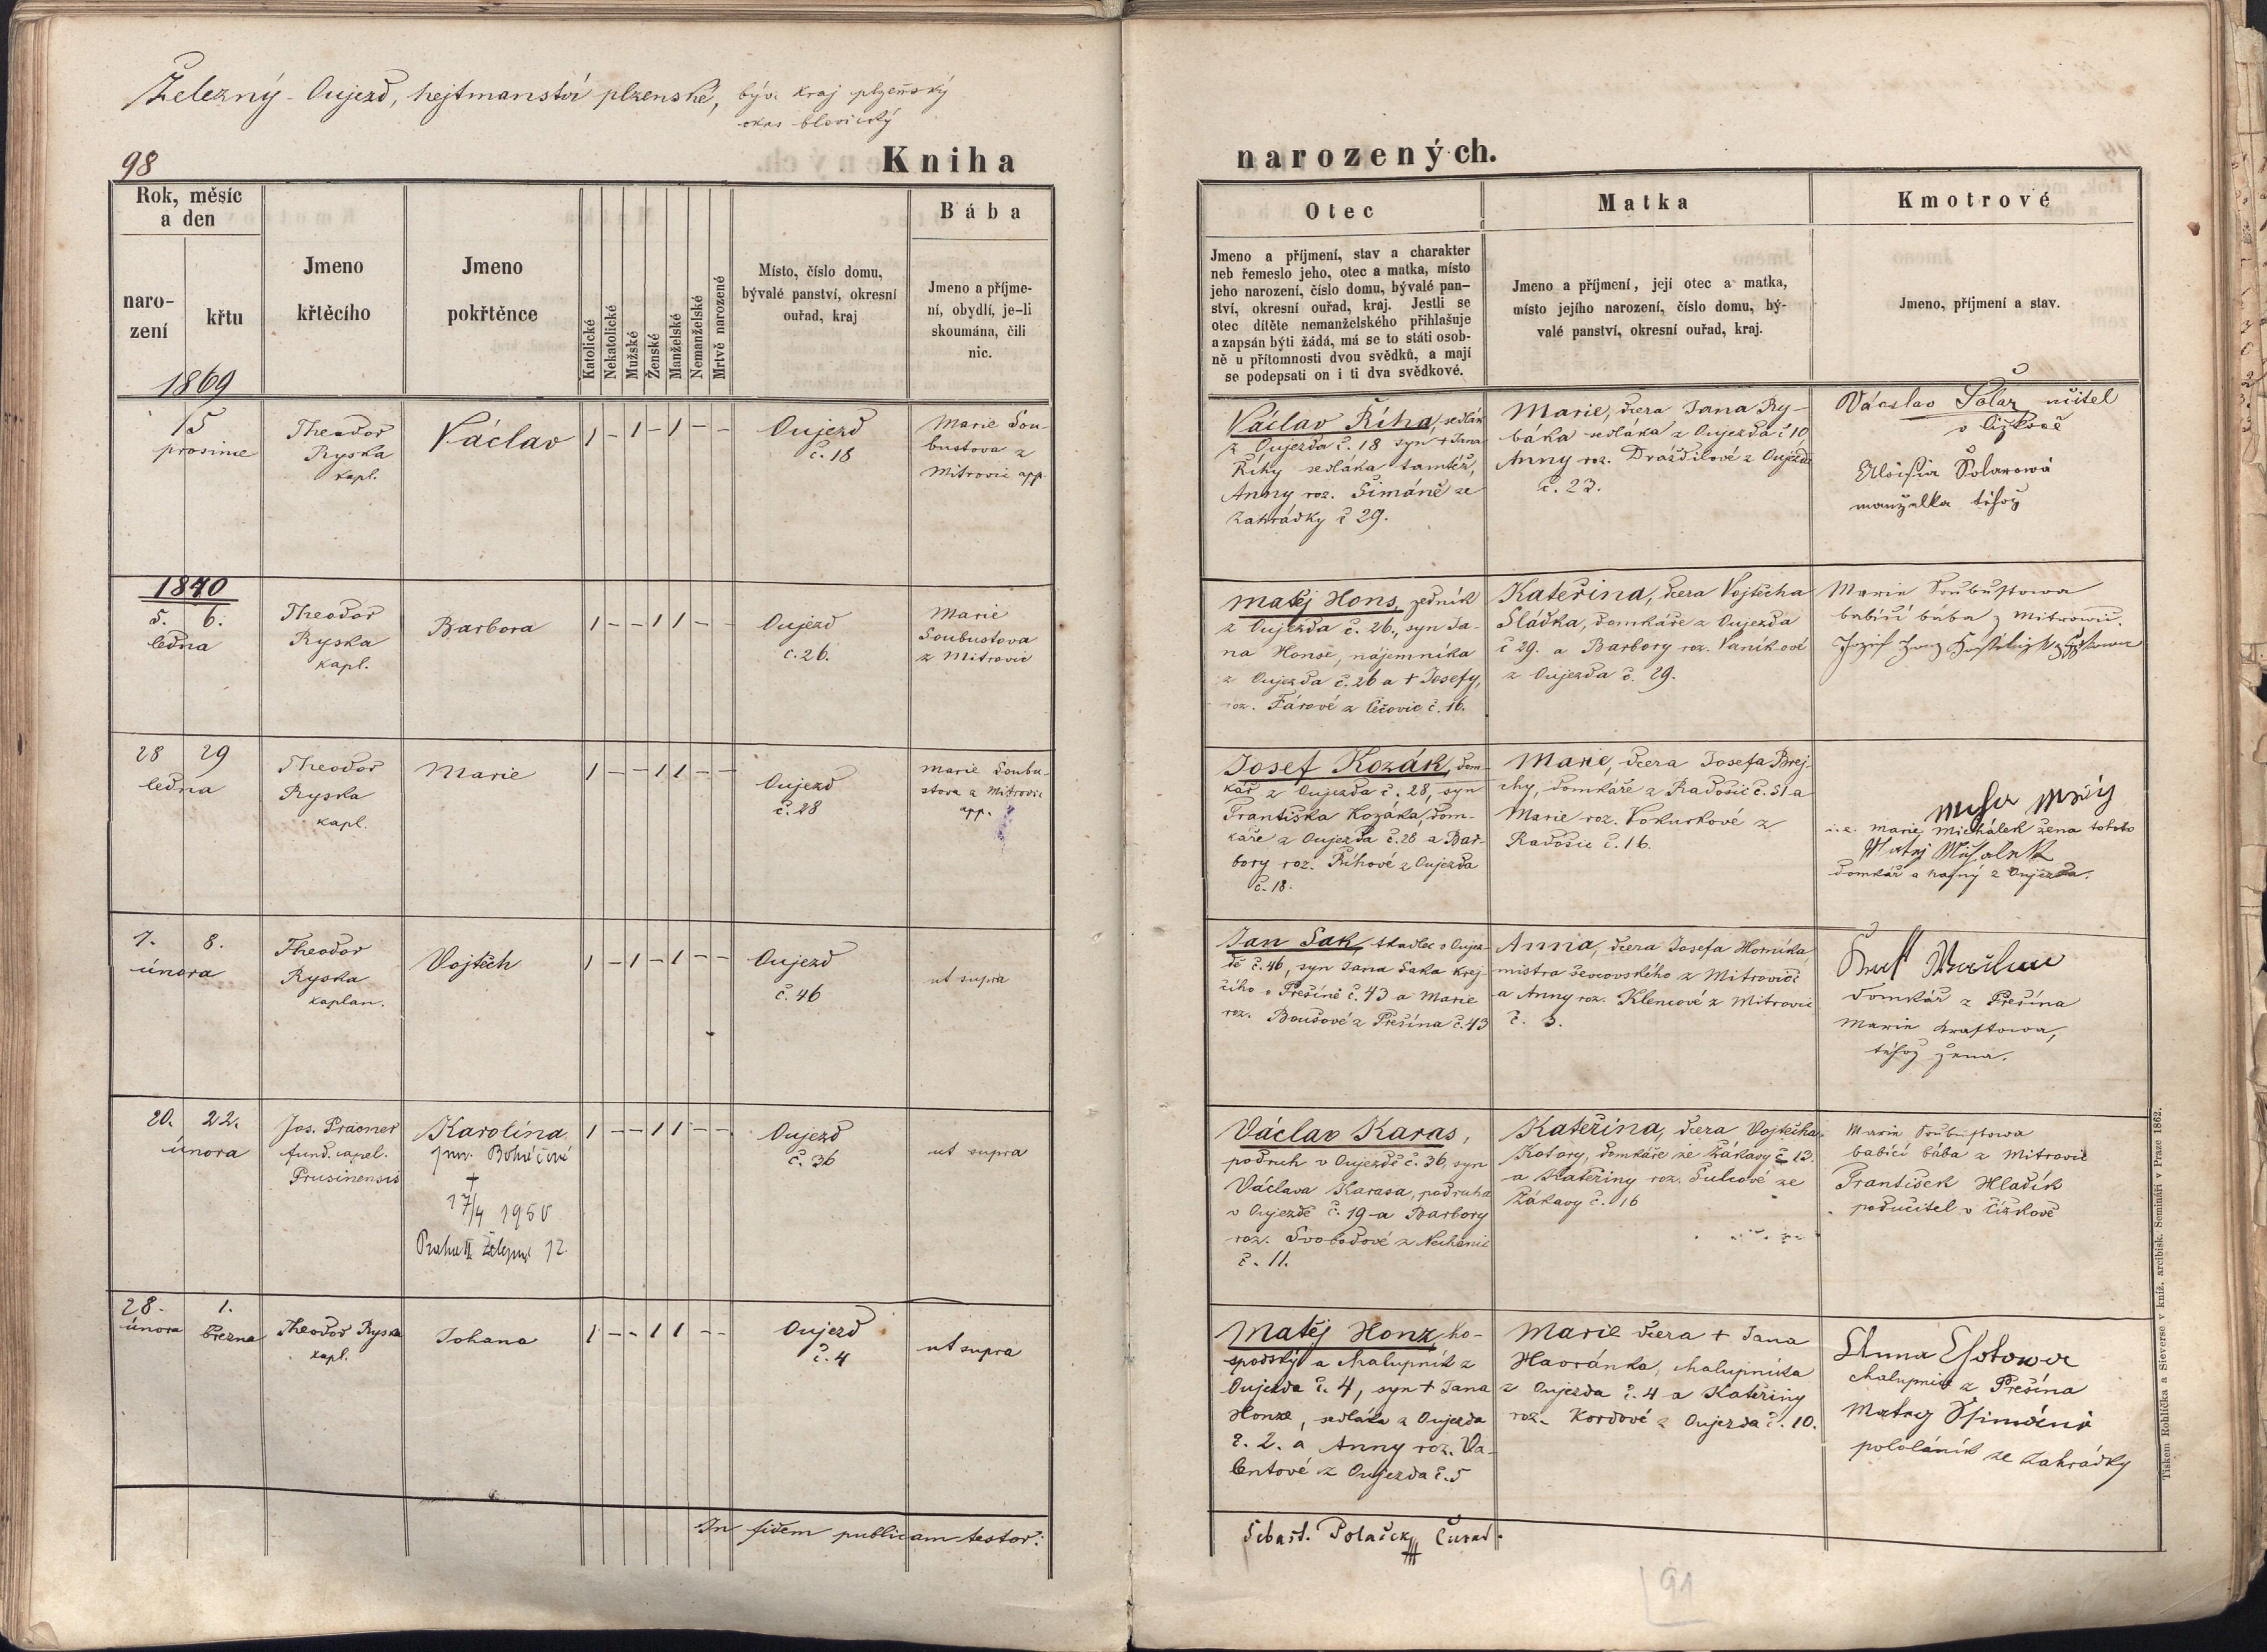 Železný-Oujezd, hejtmanství plzenské, býv. kraj plzeňský
okres blovický
98
Kniha
Rok, měsíc
a den
naro-
zení
křtu
Jmeno
křtěcího
Jmeno
pokřtěnce
Katolické
Nekatolické
Mužské
Ženské
Manželské
Nemanželské
Mrtvě narozené
Místo, číslo domu,
bývalé panství, okresní
ouřad, kraj
Bába
Jmeno a příjme-
ní, obydlí, je-li
skoumána, čili
nic.
1869
15
prosince
Theodor
Ryska
kapl.
Václav
1 - 1 - 1 - -
Oujezd
č. 18
Marie Sou-
bustova z
Mitrovic app.
1870
5. 6.
ledna
Theodor
Ryska
kapl.
Barbora
1 - - 1 1 - -
Oujezd
č. 26.
Marie
Soubustova
z Mitrovic
28 29
ledna
Theodor
Ryska
kapl.
Marie
1 - - 1 1 - -
Oujezd
č. 28
Marie Soubu-
stova z Mitrovic
app.
7. 8.
února
Theodor
Ryska
kaplan.
Vojtěch
1 - 1 - 1 - -
Oujezd
č. 46
ut supra
20. 22.
února
Jos.
fund. capel.
Prusinensis
Karolina
†
17/4 1950
Praha II 12.
1 - - 1 1 - -
Oujezd
č. 36
ut supra
28. 1.
února března
Theodor Ryska
kapl.
Johana
1 - - 1 1 - -
Oujezd
č. 4
ut supra
In fidem publicam testor:
narozených.
Otec
Jmeno a příjmení, stav a charakter
neb řemeslo jeho, otec a matka, místo
jeho narození, číslo domu, bývalé pan-
ství, okresní ouřad, kraj. Jestli se
otec dítěte nemanželského přihlašuje
a zapsán býti žádá, má se to státi osob-
ně u přítomnosti dvou svědků, a mají
se podepsati on i ti dva svědkové.
Matka
Jmeno a příjmení, její otec a matka,
místo jejího narození, číslo domu, bý-
valé panství, okresní ouřad, kraj.
Kmotrové
Jmeno, příjmení a stav.
Václav Říha, sedlák
z Oujezda č. 18 syn † Jana
Říhy sedláka tamtéž,
Anny roz. Šimáně ze
Zahrádky č 29.
Marie, dcera Jana Ry-
báka sedláka z Oujezda č 10
Anny roz. Draždilové z Oujezda
č. 23.
Václav Šolar učitel
v Čížkově
Aloisia Šolarowá
manželka téhož
Matěj Hons, zedník
z Oujezda č. 26., syn Ja-
na Honse, nájemníka
z Oujezda č. 26 a † Josefy,
roz. Fárové z Čečovic č. 16.
Kateřina, dcera Vojtěcha
Sládka, domkáře z Oujezda
č 29. a Barbory roz. Vaníkové
z Oujezda č. 29.
Marie Soubustowa
babící bába z Mitrowic.
Jozef
Josef Kozák, dom-
kář z Oujezda č. 28, syn
Františka Kozáka, dom-
káře z Oujezda č. 28 a Bar-
bory roz. Říhové z Oujezda
č. 18.
Marie, dcera Josefa Brej-
chy, domkáře z Radošic č. 51 a
Marie roz. Kokurkové z
Radošic č. 16.
i.e. Marie Michálek žena tohoto
Matej Michalek
domkář a hajný z Oujezda.
Jan Sak, tkadlec v Oujez-
dě č. 46, syn Jana Saka krej-
čího v Přešíně č. 43 a Marie
roz. Boušové z Přešína č. 43
Anna, dcera Josefa Horníka,
mistra ševcovského z Mitrovic č
a Anny roz. Klencové z Mitrovic
č. 3.
domkář z Přešína
Marie Kraftowa,
téhož žena.
Václav Karas,
podruh v Oujezdě č. 36, syn
Václava Karasa, podruha
v Oujezdě č. 19 a Barbory
roz. Svobodové z Nechanic
č. 11.
Kateřina, dcera Vojtěcha
Kotory, domkáře ze Žákavy č 13.
a Kateřiny roz. Šulcové ze
Žákavy č. 16
Marie Soubustowa
babící bába z Mitrovic
František Hladík
podučitel v Čížkově
Matěj Honz, ho-
spodský a chalupník z
Oujezda č. 4, syn † Jana
Honze, sedláka z Oujezda
č. 2. a Anny roz. Va-
lentové z Oujezda č. 5
Marie dcera † Jana
Havránka, chalupníka
z Oujezda č. 4 a Kateřiny
roz. Kordové z Oujezda č. 10.
Anna
chalupnice z Přešína
Matěj Šimáně
pololáník ze Zahrádky
Sebast. Polaček Curat.
91
Tiskem Rohlíčka a Sieverse v kníž. arcibisk. Semináři v Praze 1862.